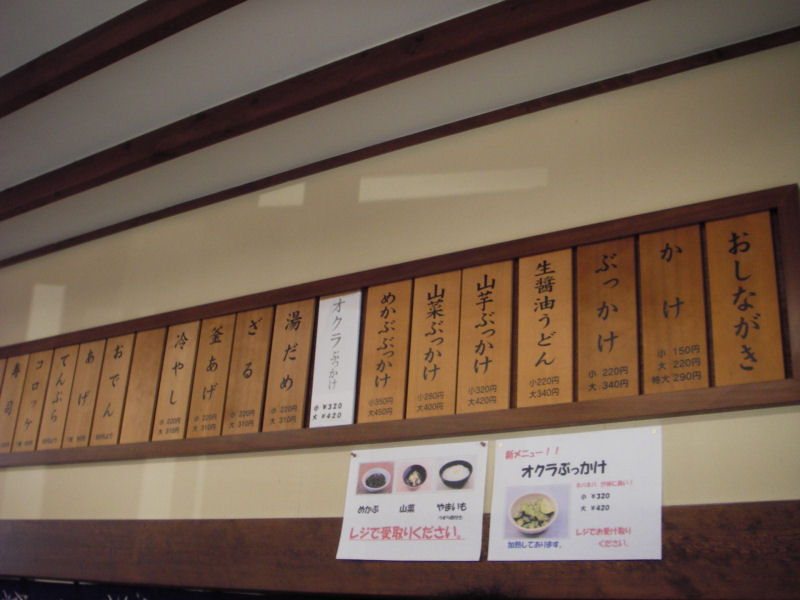 おしながき
かけ
小 150円
大 220円
特大 290円
ぶっかけ
小 220円
大 340円
生醤油うどん
小220円
大340円
山芋ぶっかけ
小320円
大420円
山菜ぶっかけ
小280円
大400円
めかぶぶっかけ
小350円
大450円
オクラぶっかけ
小 ¥320
大 ¥420
湯だめ
小 220円
大 310円
ざる
小 220円
大 310円
釜あげ
小 220円
大 310円
冷やし
小 220円
大 310円
おでん
あげ
てんぷら
コロッケ
寿司
めかぶ
山菜
やまいも
レジで受取りください。
新メニュー！！
オクラぶっかけ
ネバネバ、が体に良い！
小 ¥320
大 ¥420
加熱してあります。
レジでお受け取り
ください。